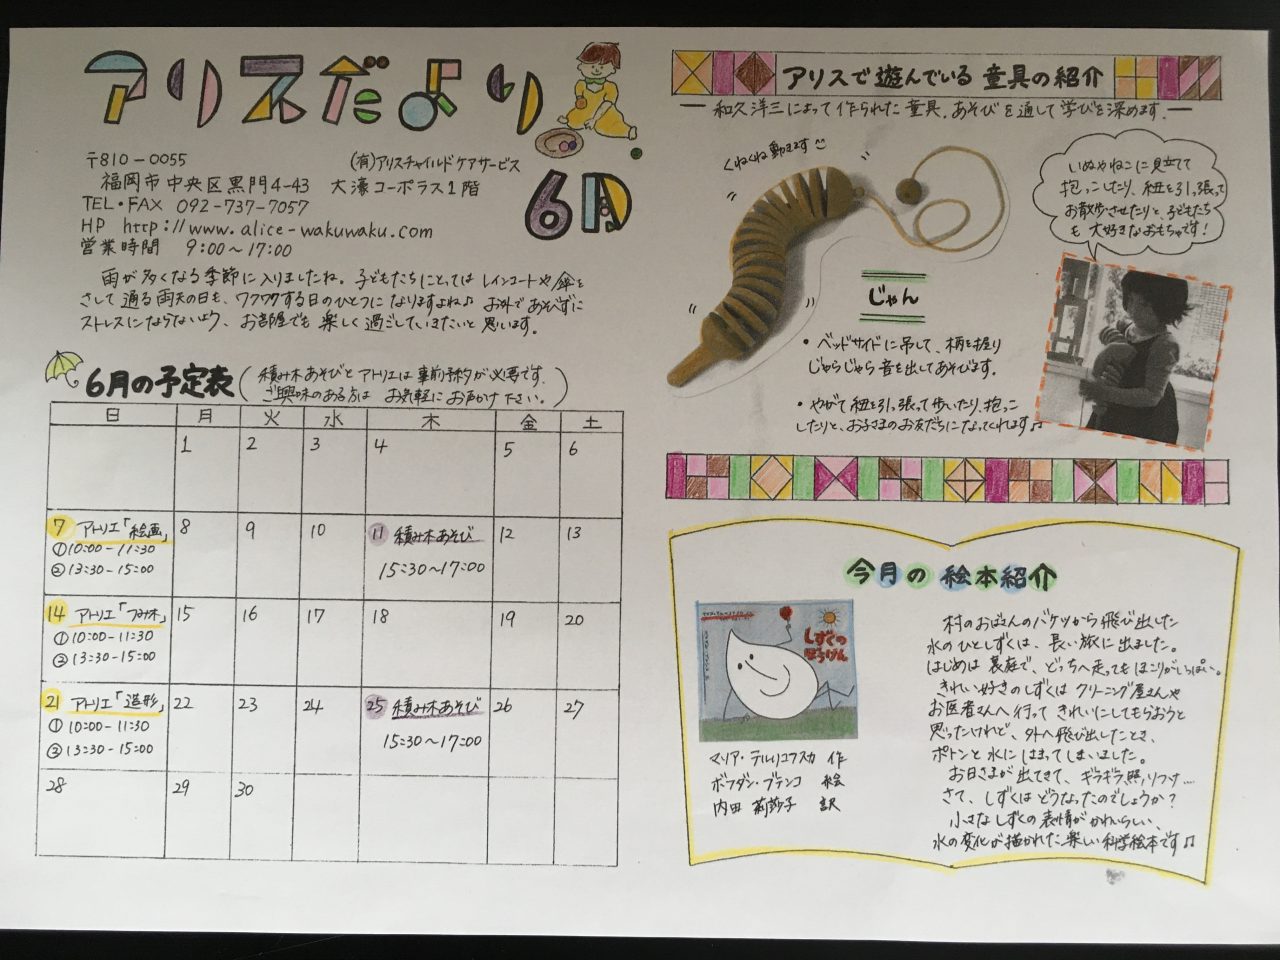 アリスだより
6月
〒810-0055 (有)アリスチャイルドケアサービス
福岡市中央区黒門4-43 大濠コーポラス1階
TEL・FAX 092-737-7057
HP http://www.alice-wakuwaku.com
営業時間 9:00～17:00
雨が多くなる季節に入りましたね。子どもたちにとってはレインコートや傘を
さして通る雨天の日も、ワクワクする日のひとつになりますよね♪ お外であそべずに
ストレスにならないよう、お部屋でも楽しく過ごしていきたいと思います。
6月の予定表
(積み木あそびとアトリエは事前予約が必要です。
ご興味のある方は お気軽にお声かけ下さい。)
日 月 火 水 木 金 土
1 2 3 4 5 6
7 アトリエ「絵画」 8 9 10 11 積み木あそび 12 13
①10:00-11:30
②13:30-15:00 15:30～17:00
14 アトリエ「つみ木」 15 16 17 18 19 20
①10:00-11:30
②13:30-15:00
21 アトリエ「造形」 22 23 24 25 積み木あそび 26 27
①10:00-11:30
②13:30-15:00 15:30～17:00
28 29 30
アリスで遊んでいる童具の紹介
― 和久洋三によって作られた童具。あそびを通して学びを深めます。―
くねくね動きます
いぬやねこに見立てて
抱っこしたり、紐を引っ張って
お散歩させたりと、子どもたち
も大好きなおもちゃです!
じゃん
・ベッドサイドに吊して、柄を握り
じゃらじゃら音を出してあそびます。
・やがて紐を引っ張って歩いたり、抱っこ
したりと、お子さまのお友だちになってくれます♫
今月の絵本紹介
しずくの
ぼうけん
マリア・テルリコフスカ 作
ボフダン・ブテンコ 絵
内田 莉莎子 訳
村のおばさんのバケツから飛び出した
水のひとしずくは、長い旅に出ました。
はじめは裏庭で、どっちへ走ってもほこりがいっぱい。
きれい好きのしずくはクリーニング屋さんや
お医者さんへ行ってきれいにしてもらおうと
思ったけれど、外へ飛び出したとき、
ポトンと水にはまってしまいました。
お日さまが出てきて、ギラギラ照りつけ…
さて、しずくはどうなったのでしょうか?
小さなしずくの表情がかわいらしい、
水の変化が描かれた楽しい科学絵本です♫